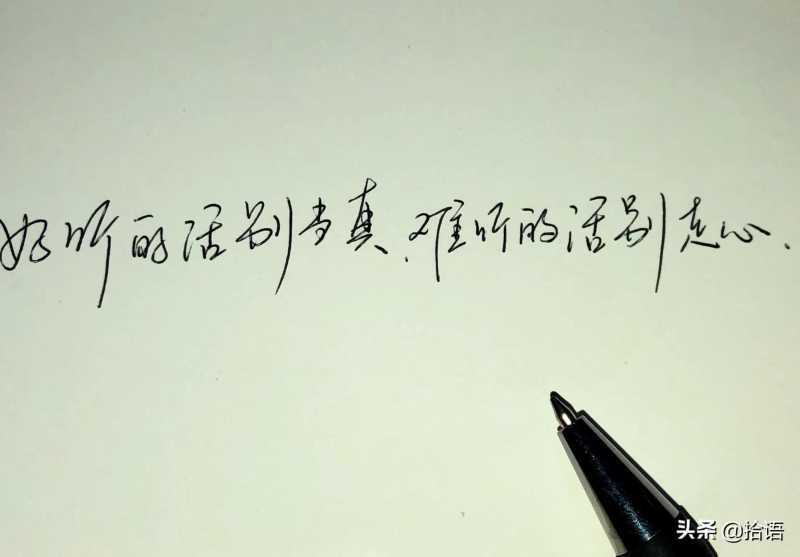 好听的话别当真.难听的话别走心.
头条 @拾语